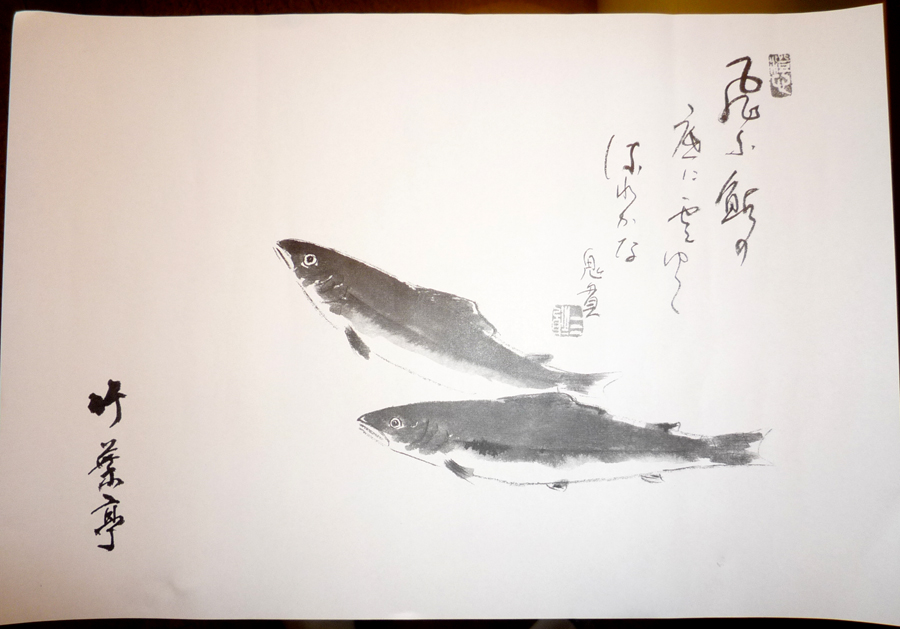 飛ふ鮎の
底に雲ゆく
流れかな
鬼貫
竹葉亭